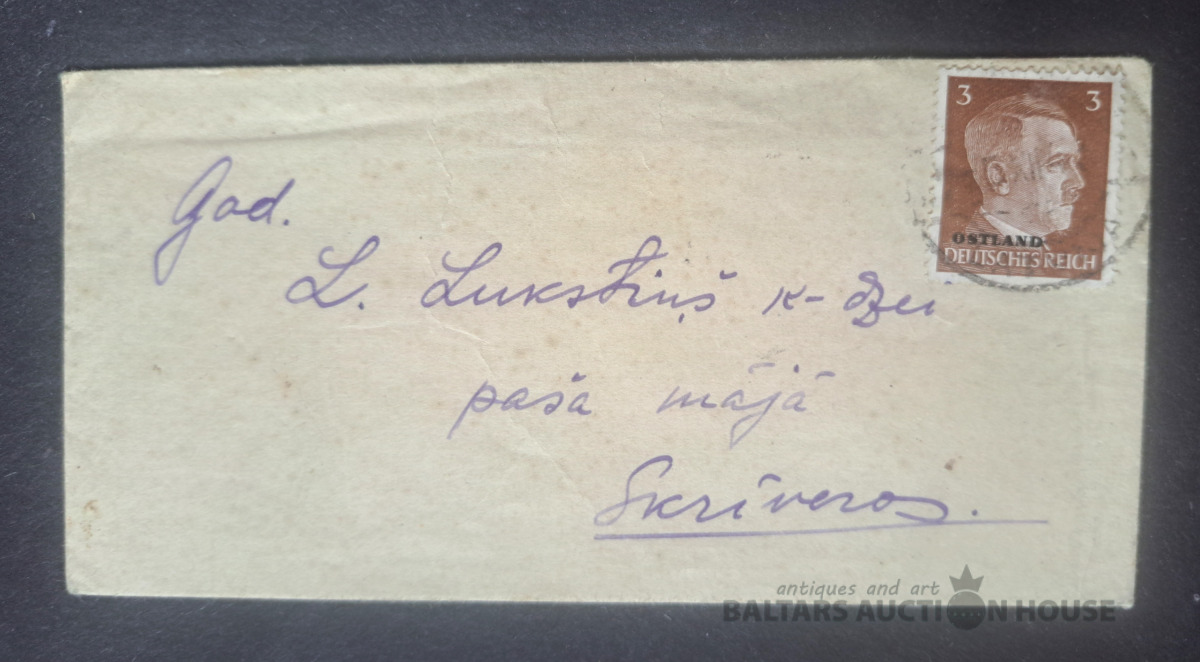 God.
L. Lukstiņš k-dzei
paša mājā
Skrīveros.
3 3
OSTLAND
DEUTSCHES REICH
antiques and art
BALTARS AUCTION HOUSE